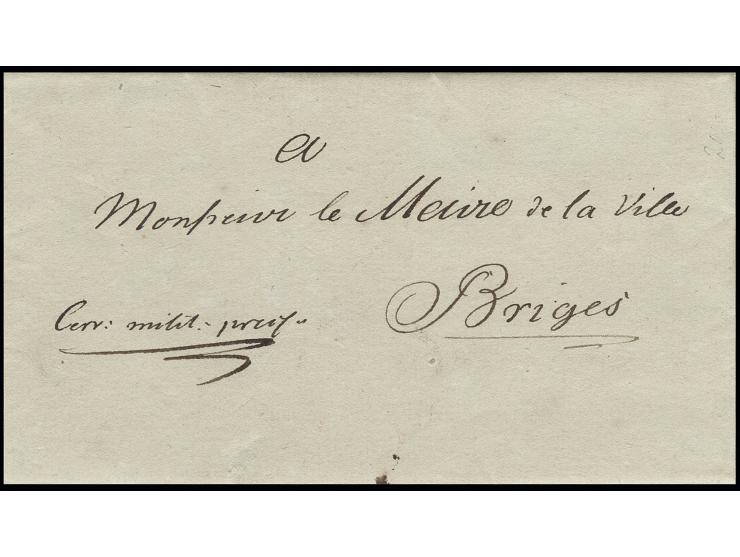 a
Monsieur le Maire de la Ville
Briges
Serv: milit. preuss.